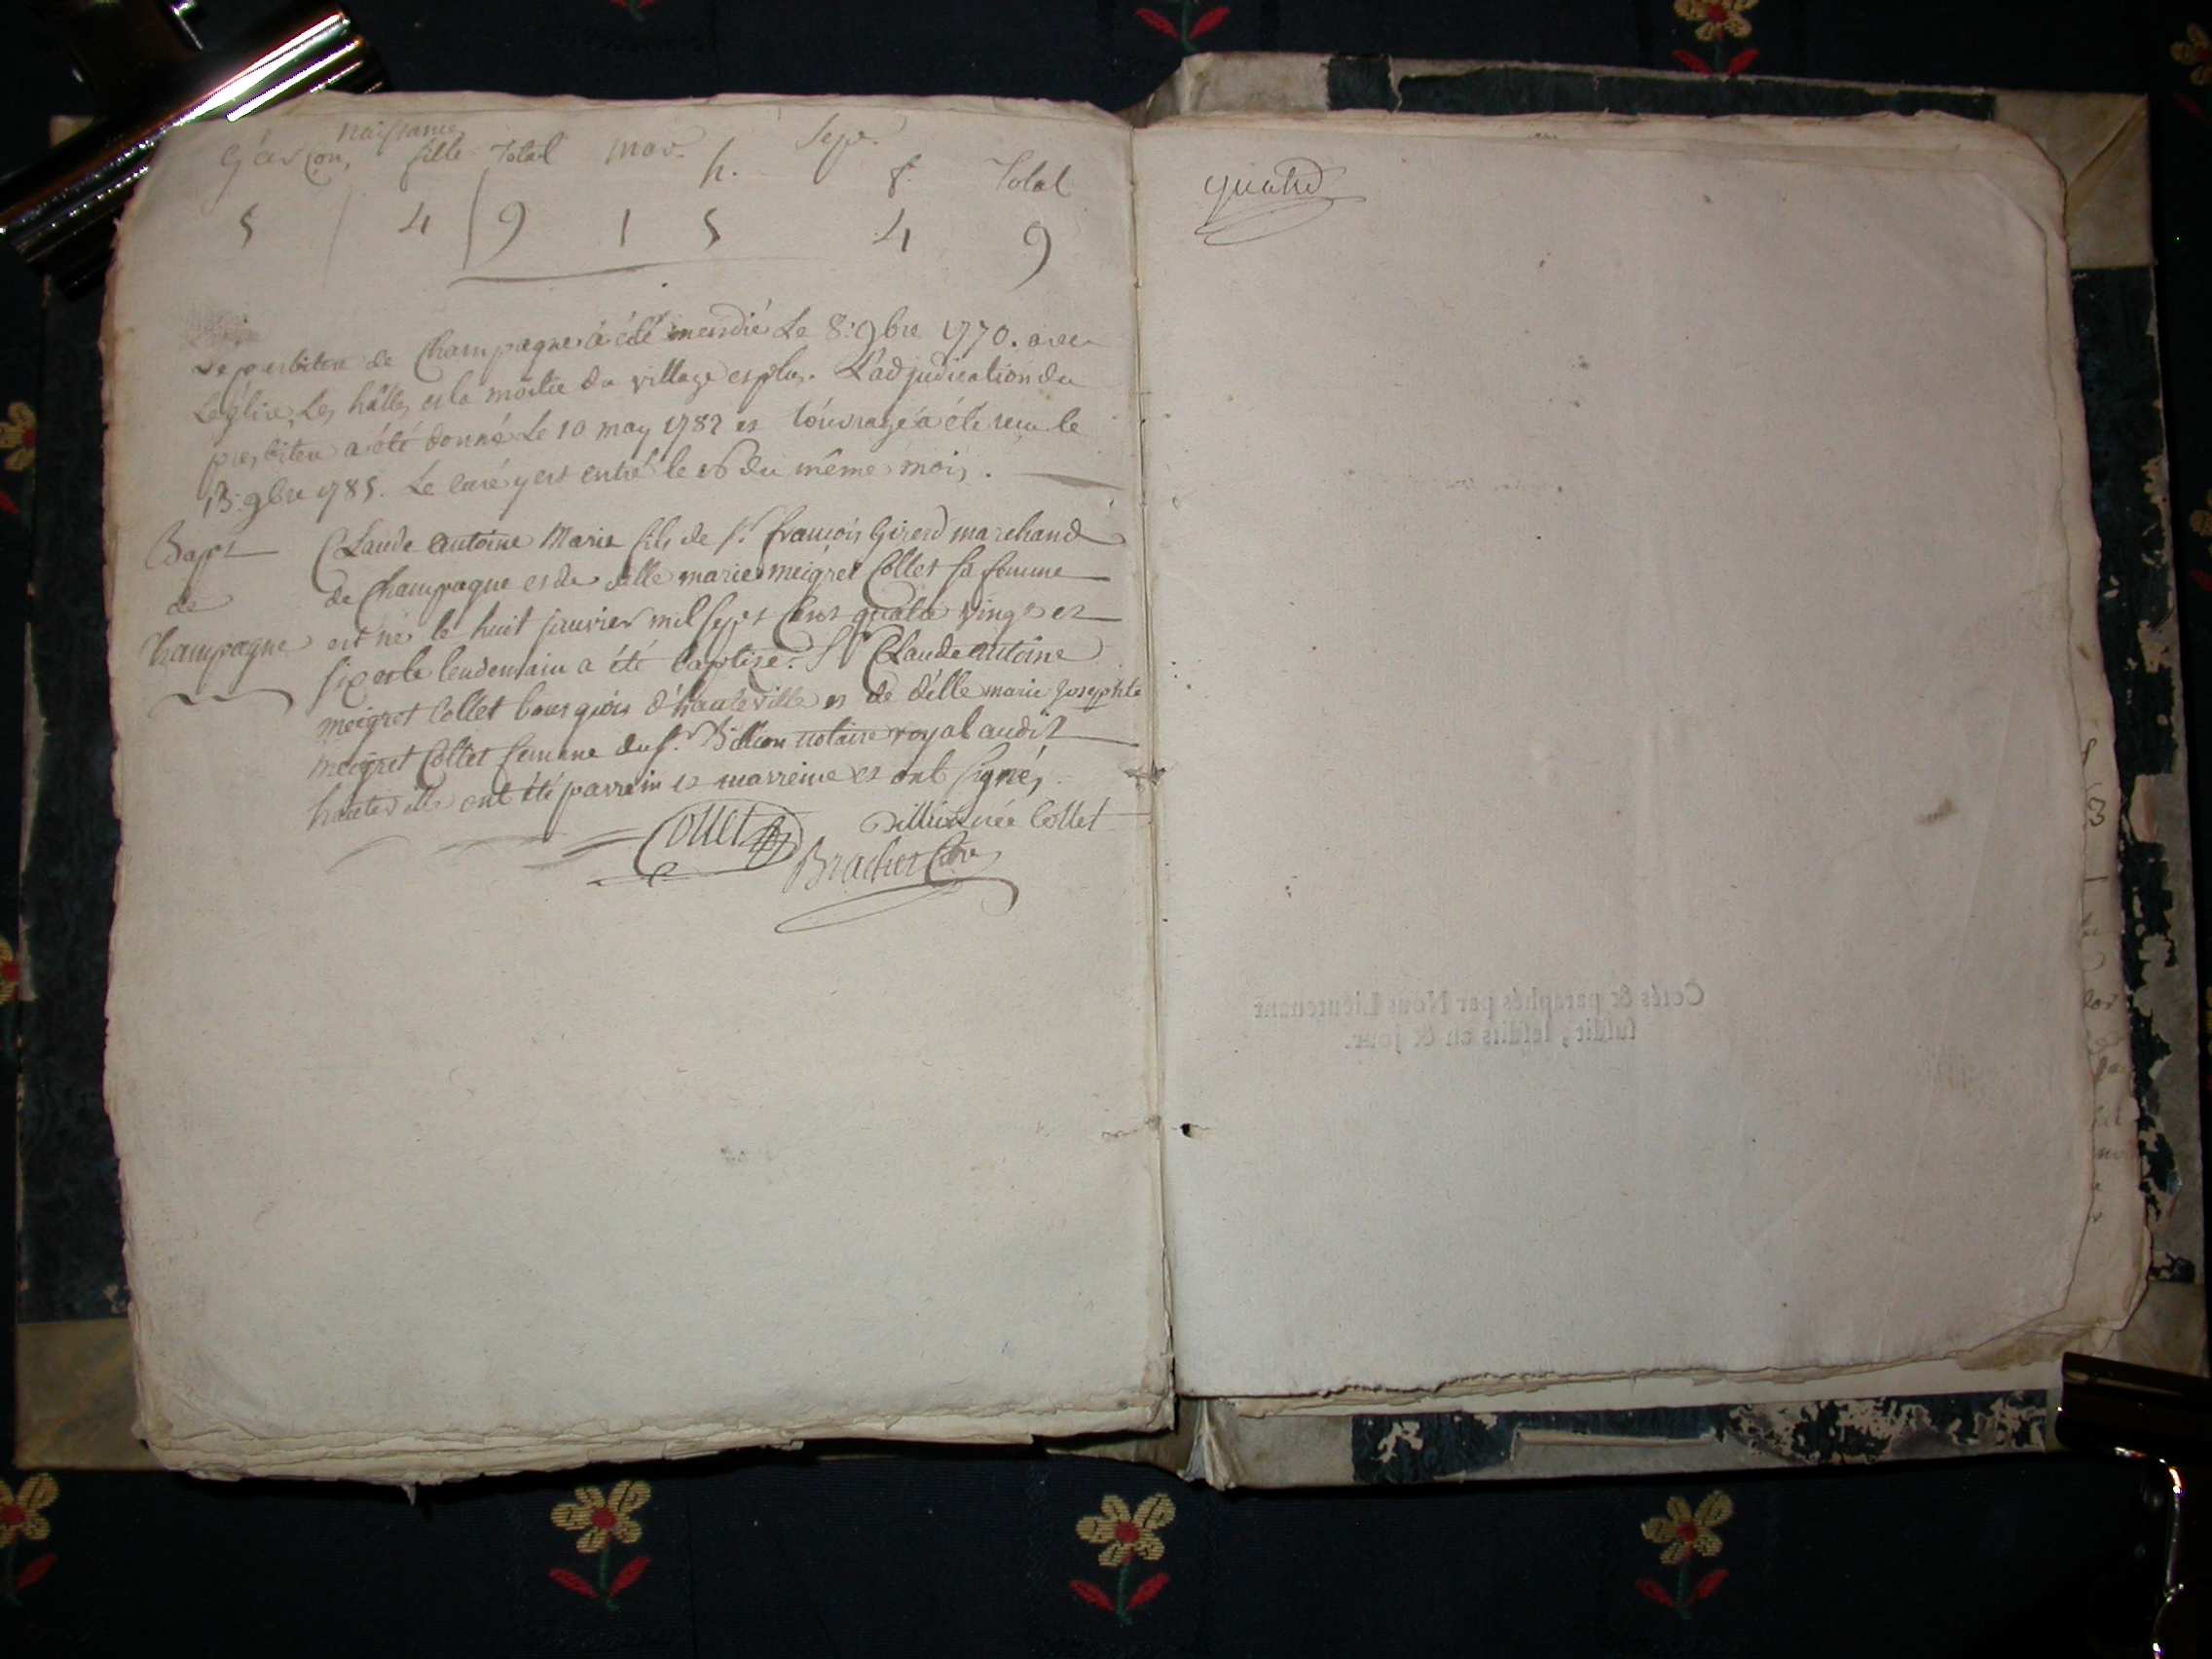 naissance
Garçon, fille Total mar. h. Sep. f. Total
5 4 9 1 5 4 9
Le presbitere de Champagne a été incendié Le 8. 9bre 1770. avec
L'église, Les hâlles et la moitie du village et plus. L'adjudication du
presbitere a été donné Le 10 may 1782 et L'ouvrage a été recu le
13. 9bre 1785. Le curé y est entré le 16 du même mois.
Bapt
de
Champagne
Claude antoine Marie fils de sr. francois Girerd marchand
de Champagne et de delle marie meigret Collet sa femme
est né le huit janvier mil sept cent quatre vingt et
six et le lendemain a été baptizé. Sr Claude antoine
meigret Collet bourgeois d'hauteville et de delle marie josephte
meigret Collet femme du sr. Billion notaire royal audit
hauteville ont été parrein et marreine et ont signés
Collet Billion née Collet
Brachet Curé
Cotés & paraphés par Nous Lieutenant
susdit, lesdits an & jour.